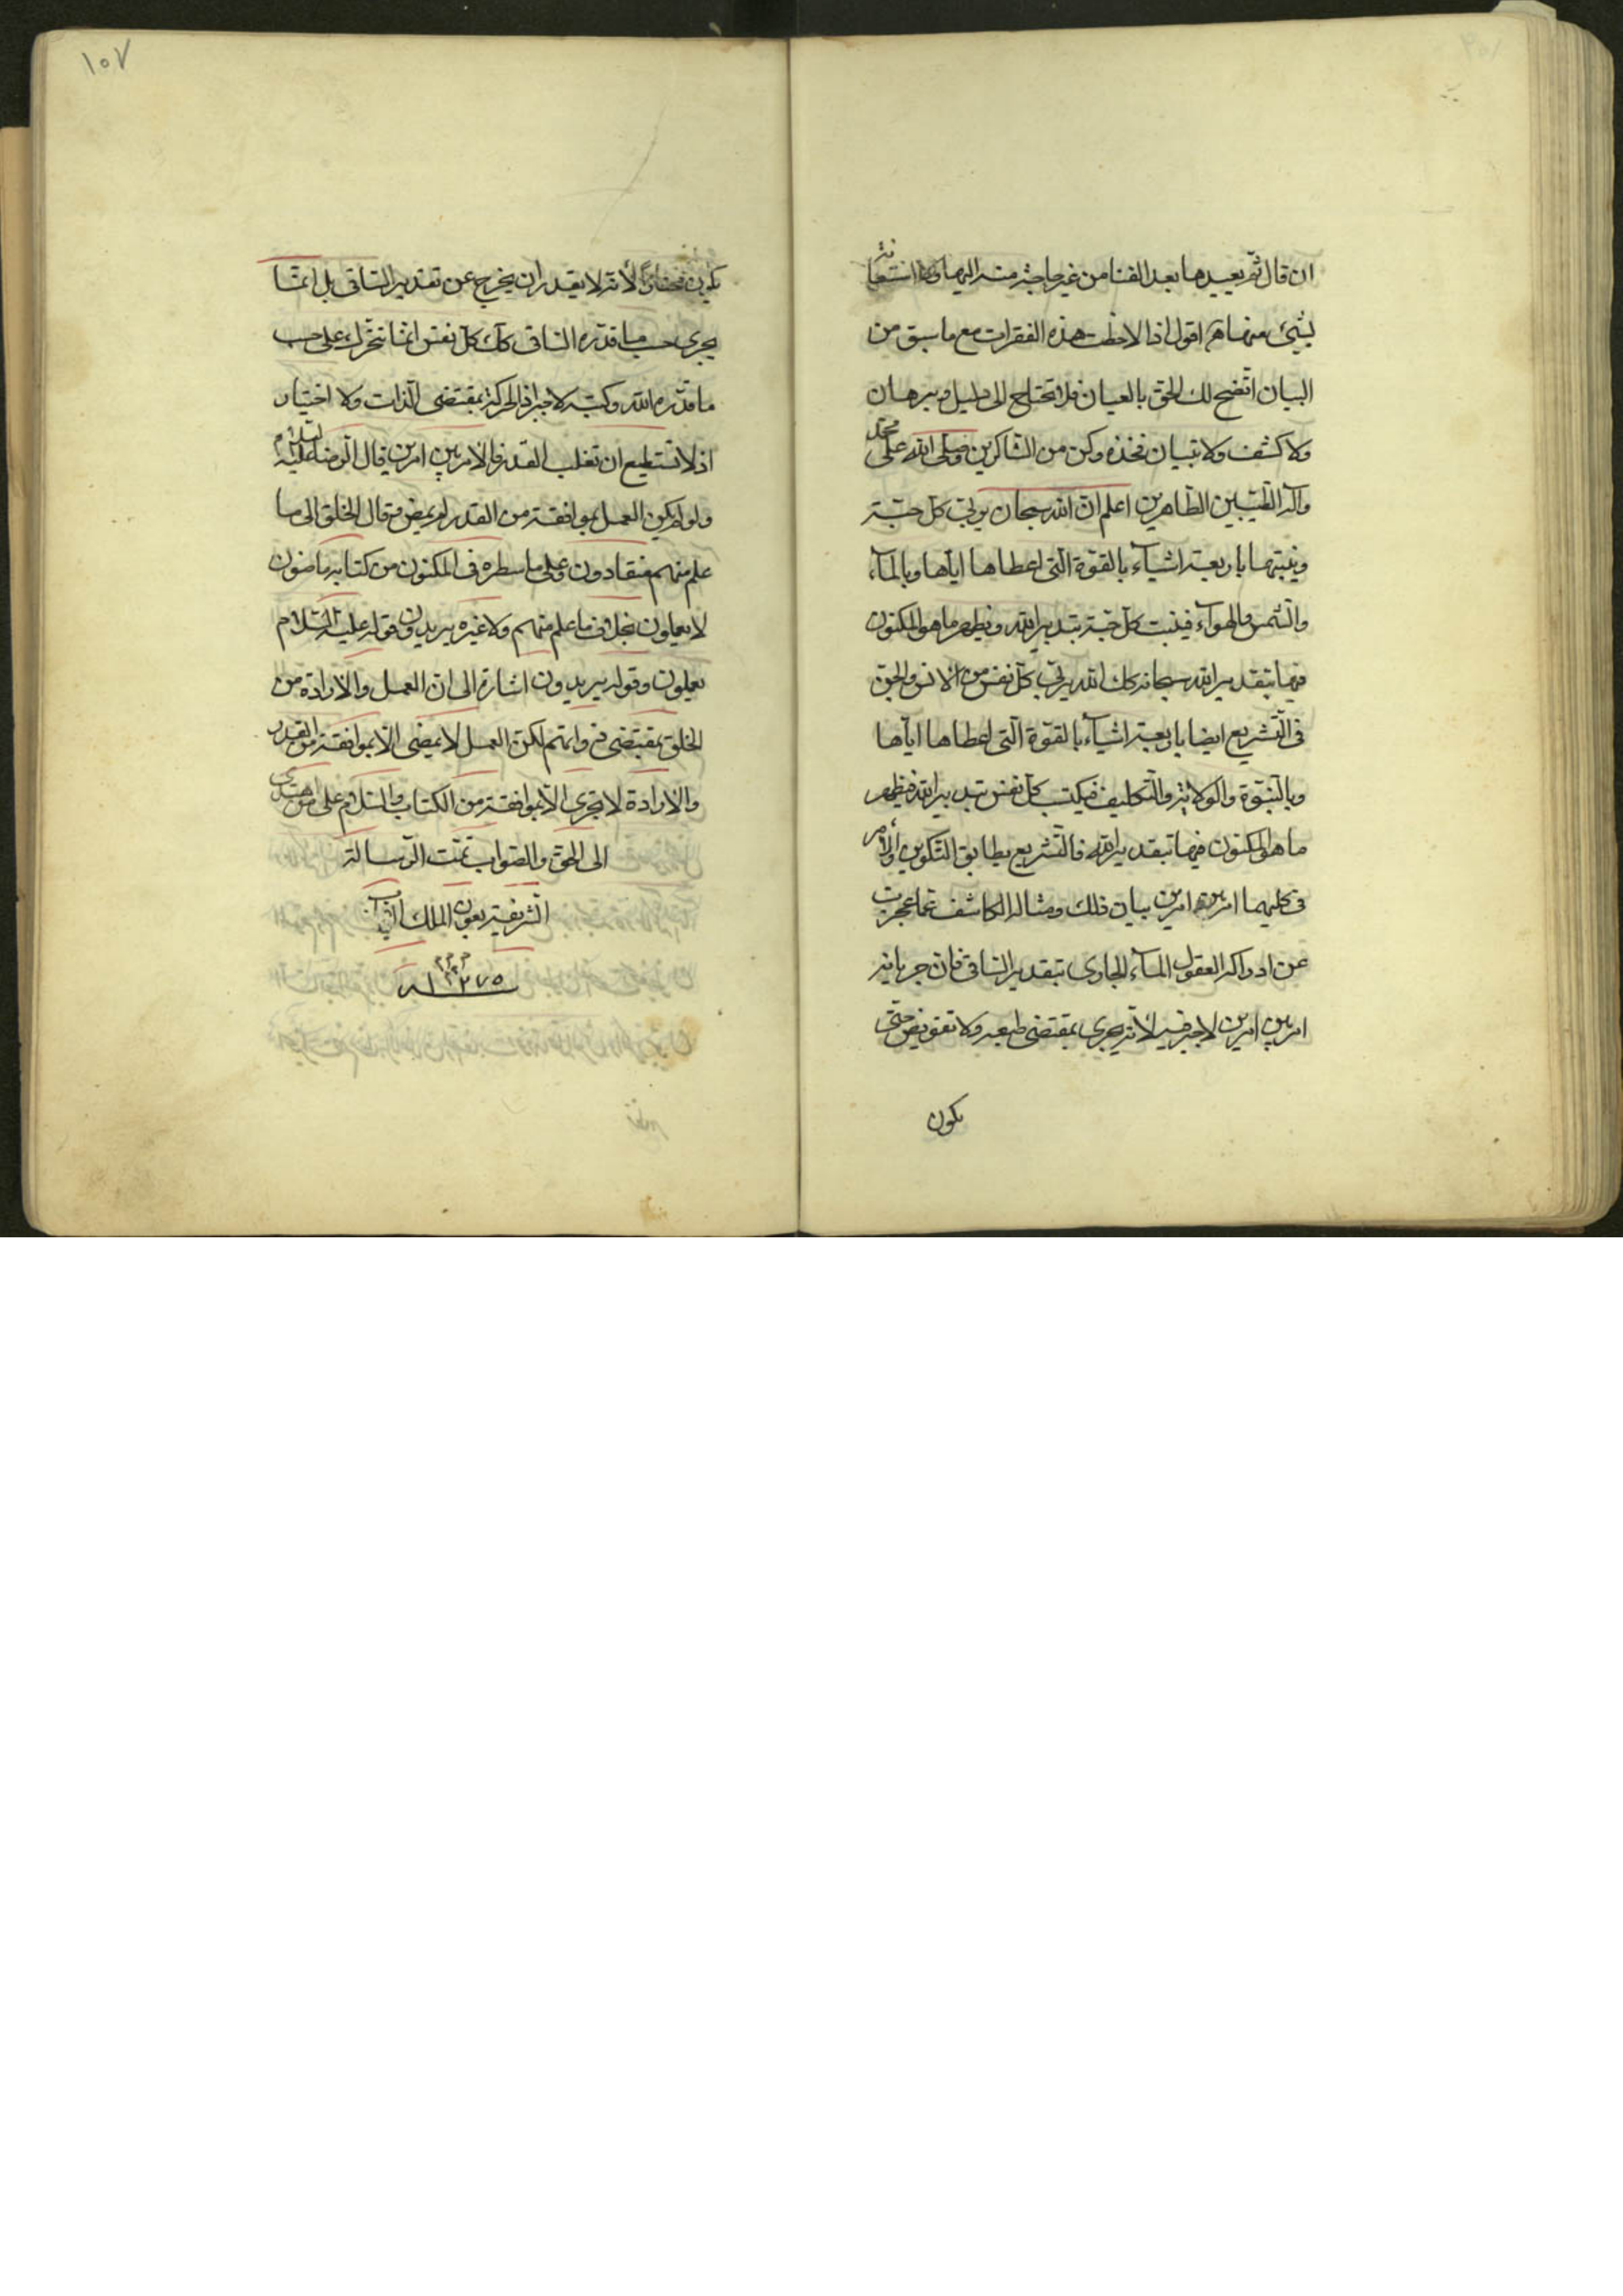 ان قال ثم يعيدها بعد الفنا من غير حاجة منه اليها ولا استعانة
بشئ منها اقول اذا لاحظت هذه الفقرات مع ما سبق من
البيان اتضح لك الحق بالعيان فلا تحتاج الى دليل وبرهان
ولا كشف ولا تبيان فخذه وكن من الشاكرين وصلى الله على محمد
وآله الطيبين الطاهرين اعلم ان الله سبحان يربى كل حبة
وينبتها باربعة اشيآء بالقوة التى اعطاها اياها وبالمآء
والشمس والهوآء فينبت كل حبة بتدبير الله ويظهر ما هو المكنون
فيها بتقدير الله سبحانه كك الله يربى كل نفس من الانس والجن
فى التشريع ايضا باربعة اشيآء بالقوة التى اعطاها اياها
وبالنبوة والولاية والتكليف فيكتسب كل نفس بتدبير الله فيظهر
ما هو المكنون فيها بتقدير الله فالتشريع يطابق التكوين والأمر
فى كليهما امر بين امرين بيان ذلك ومثاله الكاشف عما عجزت
عن ادراكه العقول المآء الجارى بتقدير الساقى فان جريانه
امر بين امرين لا جبر فيه لأنه يجرى بمقتضى طبعه ولا تفويض حتى
يكون
١٠٧
يكون مختارًا لأنه لا يقدر ان يخرج عن تقدير الساقى بل انما
يجرى حسب ما قدره الساقى كك كل نفس انما تتحرك على حسب
ما قدره الله وكتبه لا جبر اذ الحركة بمقتضى الذات ولا اختيار
اذ لا تستطيع ان تغلب القدر فالامر بين امرين قال الرضا عليه السلام
ولو لم يكن العمل بموافقة من القدر لم يمض وقال الخلق الى ما
علم منهم منقادون وعلى ما سطره فى المكنون من كتابه ماضون
لا يعملون بخلاف ما علم منهم ولا غيره يريدون قوله عليه السلام
يعملون وقوله يريدون اشارة الى ان العمل والارادة من
الخلق بمقتضى ذواتهم لكن العمل لا يمضى الا بموافقة من القدر
والارادة لا تجرى الا بموافقة من الكتاب والسلام على من اهتدى
الى الحق والصواب تمت الرسالة
الشريفة بعون الملك
١٢٧٥